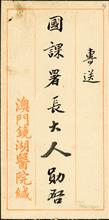 專送
國課署長大人勛啓
澳門鏡湖醫院緘